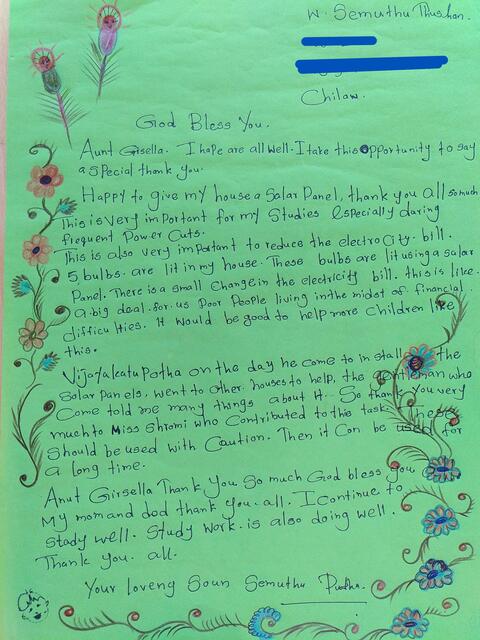 W. Semuthu Thushan.
Chilaw.
God Bless You.
Aunt Gisella. I hape are all well. I take this opportunity to say
a special thank you.
Happy to give my house a Salar Panel, thank you all so much
This is very important for my Studies Especially daring
frequent Power Cuts.
This is also very important to reduce the electrocity. bill.
5, bulbs. are lit in my house. These bulbs are lit using a salar
Panel. There is a small Change in the electricity bill. this is like.
a big deal. for. us Poor People living in the midst of financial
difficulties. It would be good to help more Children like
this.
on the day he come to in stall the
Salar Panels, went to other. houses to help, the gentleman who
Come told me many things about it. So thank You very
much to Miss Shromi who Contributed to this task. These
Should be used with Caution. Then it Can be used for
a long time.
Anut Girsella Thank You So much God bless you
My mom and dad thank you. all. I Continue to
stady well. Study work. is also doing well.
Thank you. all.
Your loveng Soun Semuthu